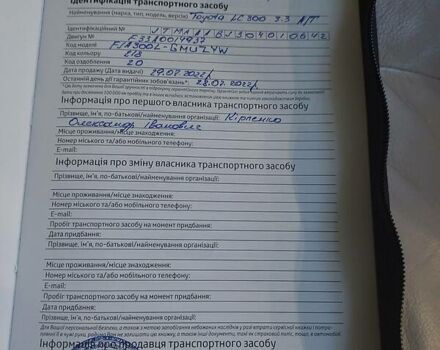 Ідентифікація транспортного засобу
Найменування (марка, тип, модель, версія) Toyota LC 300 3.3 А/Т
Ідентифікаційний №
Двигун №
Код моделі FJA300L-GMUZYW
Код кольору 218
Код оздоблення 20
Дата продажу (Дата видачі) 29.07.2022р.
Останній день дії гарантійних зобов'язань* 28.07.2022р.
Інформація про першого власника транспортного засобу
Прізвище, ім'я, по-батькові/найменування організації: Кірпенко
Олександр Іванович
Місце проживання/місце знаходження:
Номер міського та/або мобільного телефону:
E-mail:
Інформація про зміну власника транспортного засобу
Прізвище, ім'я, по-батькові/найменування організації:
Місце проживання/місце знаходження:
Номер міського та/або мобільного телефону:
E-mail:
Пробіг транспортного засобу на момент придбання:
Дата придбання:
Прізвище, ім'я, по-батькові/найменування організації:
Місце проживання/місце знаходження:
Номер міського та/або мобільного телефону:
E-mail:
Пробіг транспортного засобу на момент придбання:
Дата придбання:
Прізвище, ім'я, по-батькові/найменування організації:
Для Вашої персональної безпеки, а також з метою запобігання небажаних наслідків у разі втрати сервісної книжки і потрап-
Інформація про продавця транспортного засобу